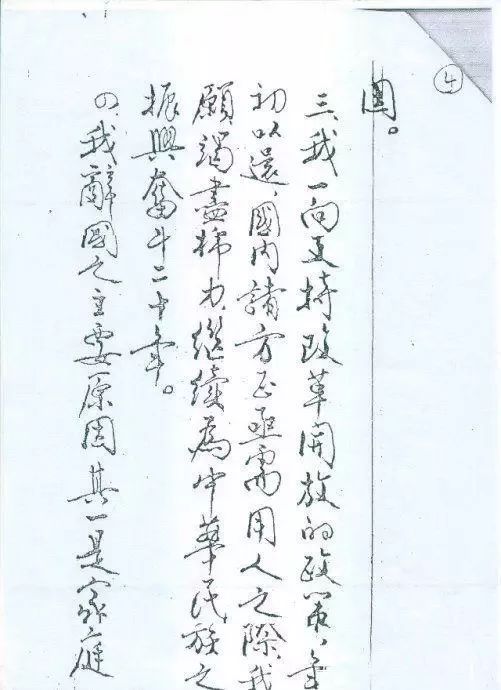 ④
國。
三、我一向支持改革開放的政策,年
初以還,國內諸方正亟需用人之際,我
願竭盡棉力,繼續為中華民族之
振興奮斗二十年。
四、我辭國之主要原因其一是家庭